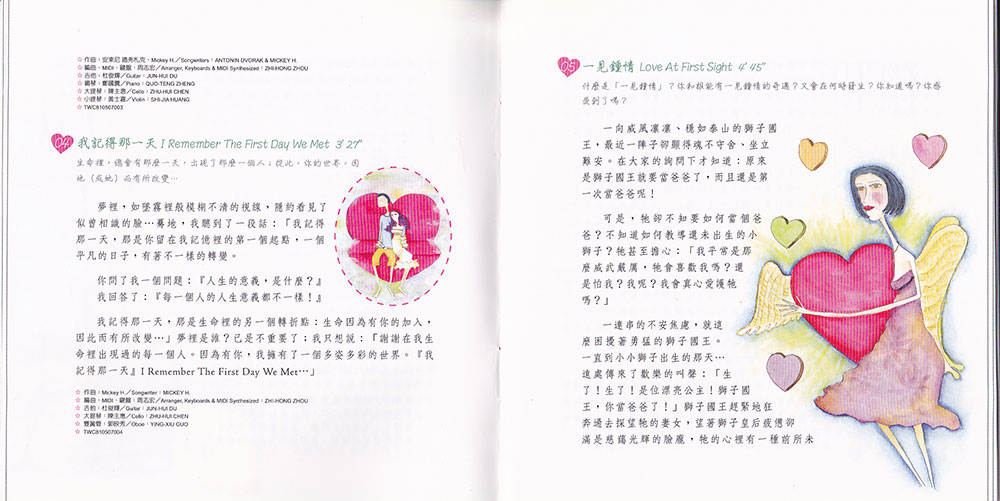 ☆ 作曲:安東尼 德弗札克,Mickey H.／Songwriters:ANTONIN DVORAK & MICKEY H.
☆ 編曲、MIDI、鍵盤:周志宏／Arranger, Keyboards & MIDI Synthesized:ZHI-HONG ZHOU
☆ 吉他:杜俊輝／Guitar:JUN-HUI DU
☆ 鋼琴:鄭國騰／Piano:QUO-TENG ZHENG
☆ 大提琴:陳主惠／Cello:ZHU-HUI CHEN
☆ 小提琴:黃士嘉／Violin:SHI-JIA HUANG
☆ TWC810507003
04 我記得那一天 I Remember The First Day We Met 3' 27"
生命裡,總會有那麼一天,出現了那麼一個人;從此,你的世界,因
他(或她)而有所改變…
夢裡,如墜霧裡般模糊不清的視線,隱約看見了
似曾相識的臉…驀地,我聽到了一段話:「我記得
那一天,那是你留在我記憶裡的第一個起點,一個
平凡的日子,有著不一樣的轉變。
你問了我一個問題:『人生的意義,是什麼?』
我回答了:『每一個人的人生意義都不一樣!』
我記得那一天,那是生命裡的另一個轉折點:生命因為有你的加入,
因此而有所改變…」夢裡是誰?已是不重要了;我只想說:「謝謝在我生
命裡出現過的每一個人。因為有你,我擁有了一個多姿多彩的世界。『我
記得那一天』I Remember The First Day We Met…」
☆ 作曲:Mickey H.／Songwriter:MICKEY H.
☆ 編曲、MIDI、鍵盤:周志宏／Arranger, Keyboards & MIDI Synthesized:ZHI-HONG ZHOU
☆ 吉他:杜俊輝／Guitar:JUN-HUI DU
☆ 大提琴:陳主惠／Cello:ZHU-HUI CHEN
☆ 雙簧管:郭映秀／Oboe:YING-XIU GUO
☆ TWC810507004
05 一見鍾情 Love At First Sight 4' 45"
什麼是「一見鍾情」?你和誰能有一見鍾情的奇遇?又會在何時發生?你知道嗎?你感
受到了嗎?
一向威風凜凜、穩如泰山的獅子國
王,最近一陣子卻顯得魂不守舍、坐立
難安。在大家的詢問下才知道:原來
是獅子國王就要當爸爸了,而且還是第
一次當爸爸呢!
可是,牠卻不知要如何當個爸
爸?不知道如何教導還未出生的小
獅子?牠甚至擔心:「我平常是那
麼威武嚴厲,牠會喜歡我嗎?還
是怕我?我呢?我會真心愛護牠
嗎?」
一連串的不安焦慮,就這
麼困擾著勇猛的獅子國王。
一直到小小獅子出生的那天…
遠處傳來了歡樂的叫聲:「生
了!生了!是位漂亮公主!獅子國
王,你當爸爸了!」獅子國王趕緊地狂
奔過去探望牠的妻女,望著獅子皇后疲憊卻
滿是慈藹光輝的臉龐,牠的心裡有一種前所未